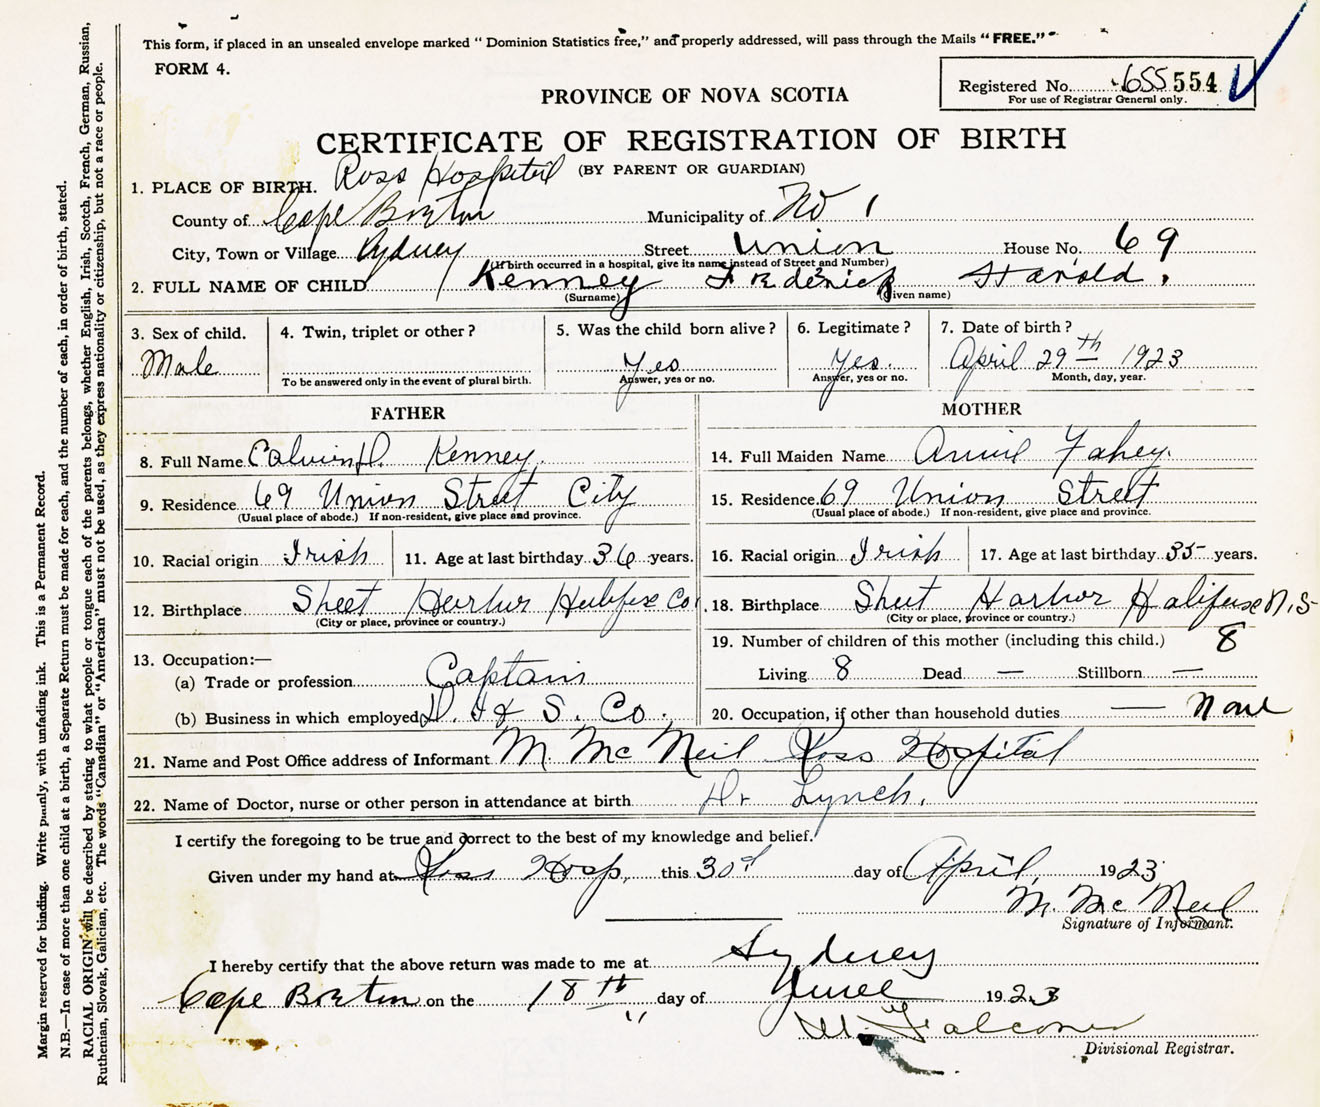 This form, if placed in an unsealed envelope marked " Dominion Statistics free," and properly addressed, will pass through the Mails " FREE."
FORM 4.
Registered No. 655 554
For use of Registrar General only.
PROVINCE OF NOVA SCOTIA
CERTIFICATE OF REGISTRATION OF BIRTH
(BY PARENT OR GUARDIAN)
1. PLACE OF BIRTH. Ross Hospital
County of Cape Breton Municipality of No 1
City, Town or Village Sydney Street Union House No. 69
(If birth occurred in a hospital, give its name instead of Street and Number)
2. FULL NAME OF CHILD Kenney Frederick Harold
(Surname) (Given name)
3. Sex of child. Male
4. Twin, triplet or other ?
To be answered only in the event of plural birth.
5. Was the child born alive ? Yes
Answer, yes or no.
6. Legitimate ? Yes.
Answer, yes or no.
7. Date of birth ? April 29th 1923
Month, day, year.
FATHER
8. Full Name Calvin H. Kenney.
9. Residence 69 Union Street City
(Usual place of abode.) If non-resident, give place and province.
10. Racial origin Irish 11. Age at last birthday 36 years.
12. Birthplace Sheet Harbor Halifax Co.
(City or place, province or country.)
13. Occupation:—
(a) Trade or profession Captain
(b) Business in which employed D. I & S. Co.
MOTHER
14. Full Maiden Name Annie Fahey.
15. Residence 69 Union Street
(Usual place of abode.) If non-resident, give place and province.
16. Racial origin Irish 17. Age at last birthday 35 years.
18. Birthplace Sheet Harbor Halifax N.S
(City or place, province or country.)
19. Number of children of this mother (including this child.) 8
Living 8 Dead — Stillborn —
20. Occupation, if other than household duties — None
21. Name and Post Office address of Informant M. McNeil Ross Hospital
22. Name of Doctor, nurse or other person in attendance at birth Dr Lynch.
I certify the foregoing to be true and correct to the best of my knowledge and belief.
Given under my hand at Ross Hosp, this 30th day of April, 1923
M. McNeil
Signature of Informant.
I hereby certify that the above return was made to me at Sydney
Cape Breton on the 18th day of June 1923
Falconer
Divisional Registrar.
Margin reserved for binding. Write plainly, with unfading ink. This is a Permanent Record.
N.B.—In case of more than one child at a birth, a Separate Return must be made for each, and the number of each, in order of birth, stated.
RACIAL ORIGIN will be described by stating to what people or tongue each of the parents belongs, whether English, Irish, Scotch, French, German, Russian,
Ruthenian, Slovak, Galician, etc. The words "Canadian" or "American" must not be used, as they express nationality or citizenship, but not a race or people.